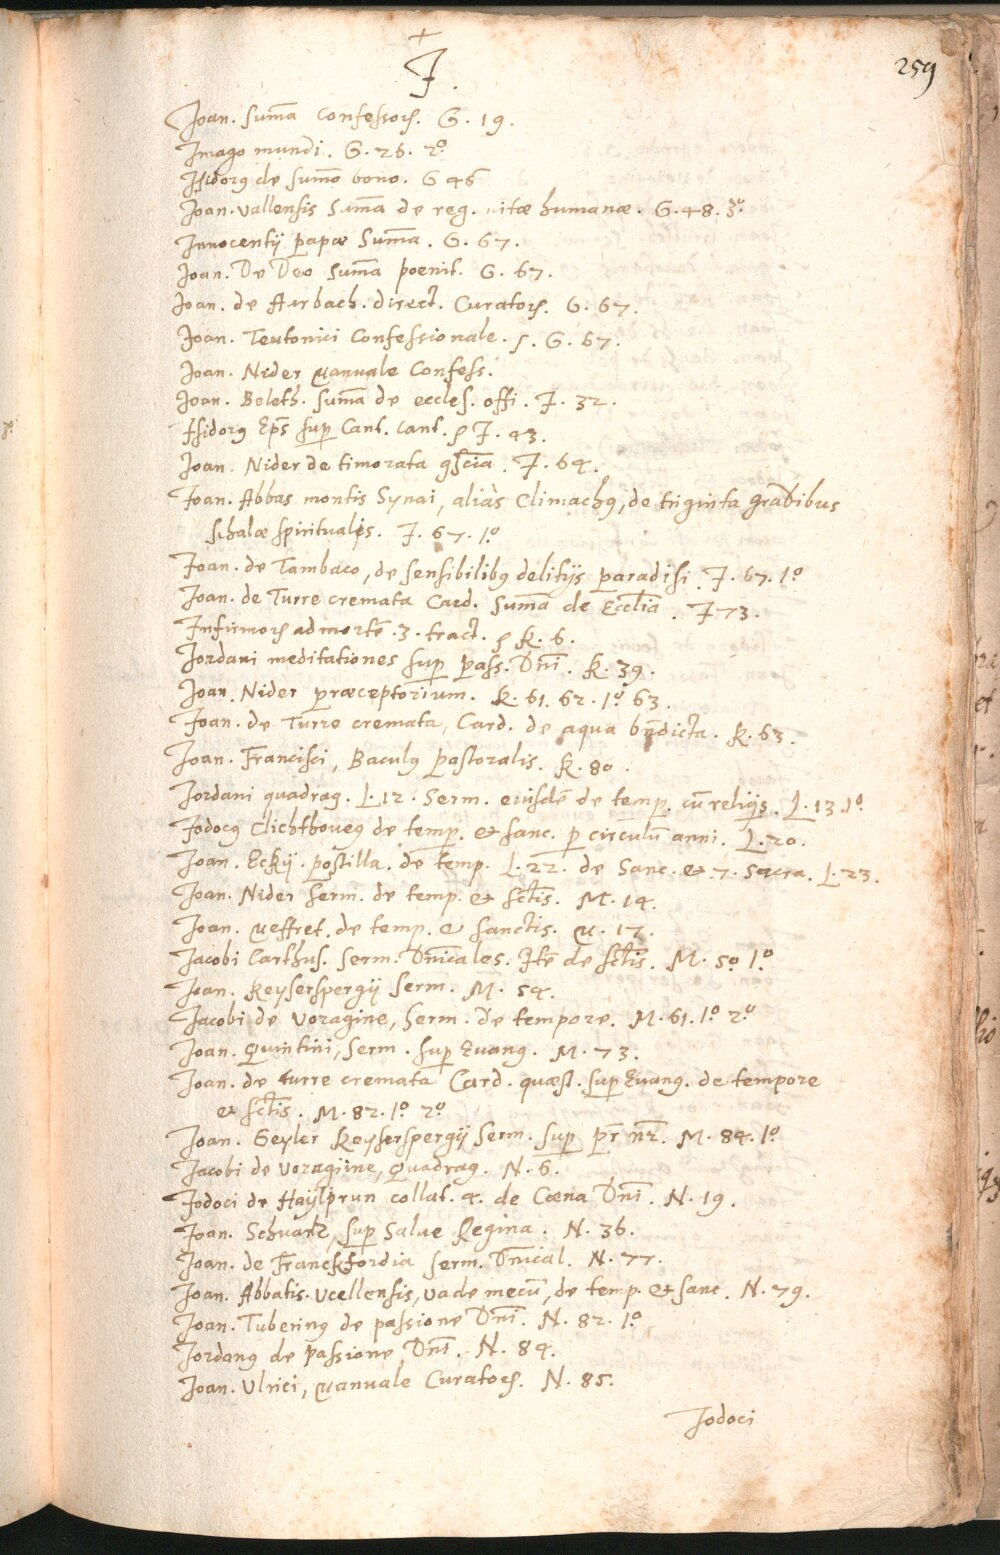 +
J.
259
Joan. Sum̄a Confessoꝝ. G. 19.
Imago mundi. G. 26. 2º
Isidorꝰ de sum̄o bono. G 46
Joan. Vallensis Sum̄a de reg. vitæ humanæ. G. 48. 3º
Innocentij papæ Sum̄a. G. 67.
Joan. De Deo Sum̄a poenit. G. 67.
Joan. de Aurbach. direct. Curatoꝝ. G. 67.
Joan. Teutonici Confessionale. G. 67.
Joan. Nider Manuale Confess.
Joan. Beleth. Sum̄a de eccles. offi. J. 32.
Isidorꝰ Ep̄s sup Cant. Cant. J. 43.
Joan. Nider de timorata ꝯscīa. J. 64.
Joan. Abbas montis Synai, aliàs Climachꝰ, de triginta gradibus
schalæ spiritualis. J. 67. 1º
Joan. de Tambaco, de sensibilibꝰ delitijs paradisi. J. 67. 1º
Joan. de Turre cremata Card. Sum̄a de Eccl̄ia. J 73.
Infirmoꝝ ad mortē. 3. tract. K. 6.
Jordani meditationes sup pass. Dn̄i. K. 39.
Joan. Nider præceptorium. K. 61. 62. 1º 63.
Joan. de Turre cremata, Card. de aqua bn̄dicta. K. 63.
Joan. Francisci, Baculꝰ pastoralis. K. 80.
Jordani quadrag. L. 12. Serm. eiusdē de temp. cū reliqis. L. 13. 1º
Jodocꝰ Clichthoueꝰ de temp. et sanc. p circulū anni. L. 20.
Joan. Eckij. postilla. de temp. L. 22. de Sanc. et. 7. Sacra. L. 23.
Joan. Nider serm. de temp. et sct̄is. M. 14.
Joan. Meffret. de temp. et sanctis. M. 17.
Jacobi Carthus. Serm. Dn̄icales. Itē de sct̄is. M. 50 1º
Joan. Keyserspergij serm. M. 54.
Jacobi de Voragine, Serm. De tempore. M. 61. 1º 2º
Joan. Quintini, Serm. sup Euang. M. 73.
Joan. de turre cremata Card. quæst. sup Euang. de tempore
et sct̄is. M. 82. 1º 2º
Joan. Geyler Keyserspergij Serm. sup pr̄ nr̄. M. 84. 1º
Jacobi de Voragine, Quadrag. N. 6.
Jodoci de Haylprun collat. 4. de Cœna Dn̄i. N. 19.
Joan. Schuartz, sup Salue Regina. N. 36.
Joan. de Franckfordia serm. Dn̄ical. N. 77.
Joan. Abbatis. Vcellensis, vade mecū, de temp. et sanc. N. 79.
Joan. Tubering de passione Dn̄i. N. 82. 1º
Jordanꝰ de passione Dn̄i. N. 84.
Joan. Ulrici, Manuale Curatoꝝ. N. 85.
Jodoci